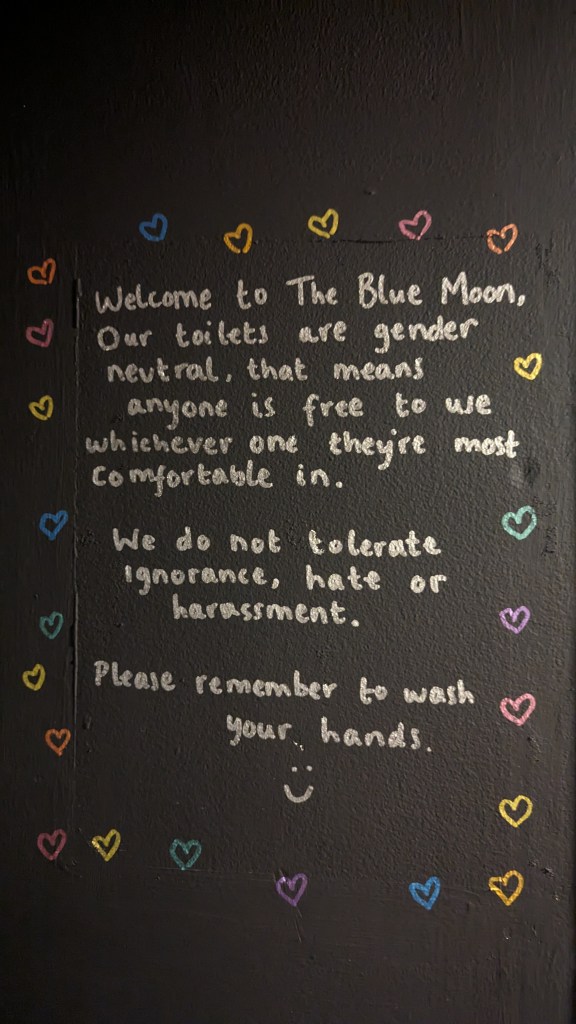 Welcome to The Blue Moon,
Our toilets are gender
neutral, that means
anyone is free to use
whichever one they're most
comfortable in.
We do not tolerate
ignorance, hate or
harassment.
Please remember to wash
your hands.